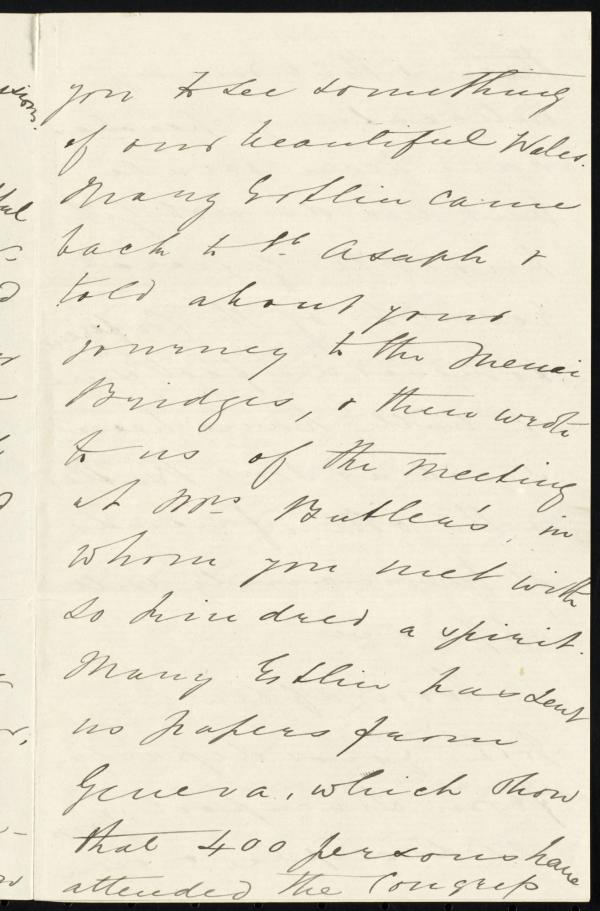 you to see something
of our beautiful Wales.
Mary Estlin came
back to St. Asaph &
told about your
journey to the Menai
Bridges, & then wrote
to us of the meeting
at Mrs Butler's, in
whom you met with
so kindred a spirit.
Mary Estlin has sent
us papers from
Geneva, which show
that 400 persons have
attended the Congress